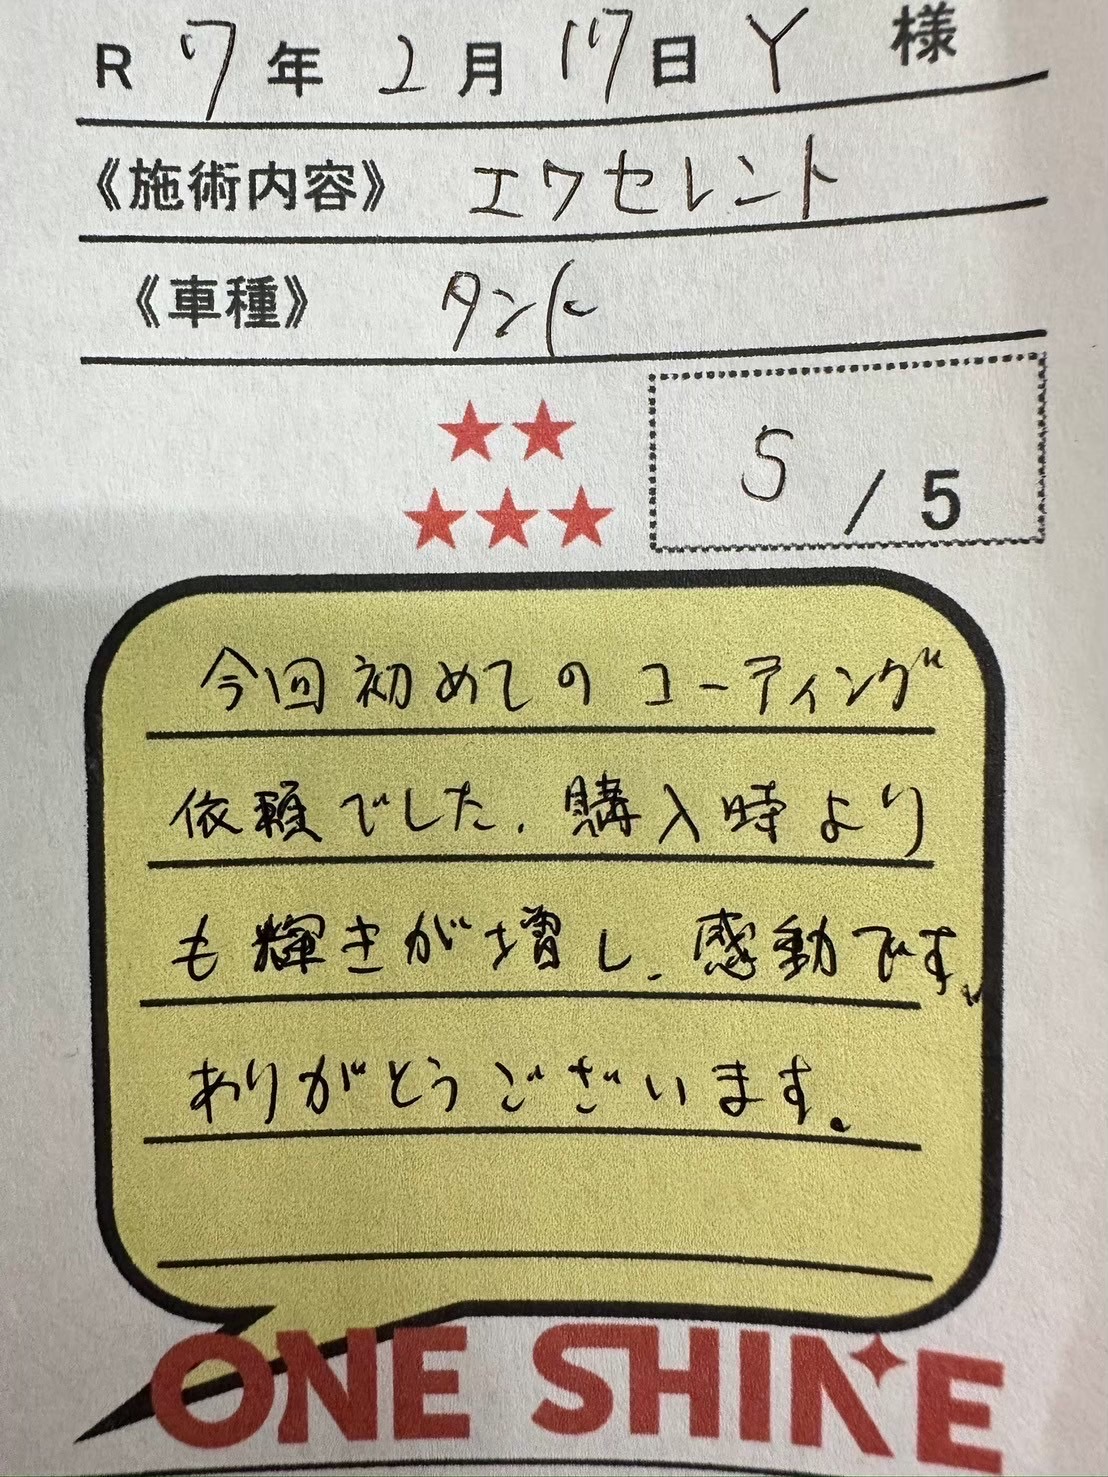 R 7年 2月 17日 Y 様
《施術内容》 エクセレント
《車種》 タント
5 / 5
今回初めてのコーティング
依頼でした、購入時より
も輝きが増し、感動です。
ありがとうございます。
ONE SHINE